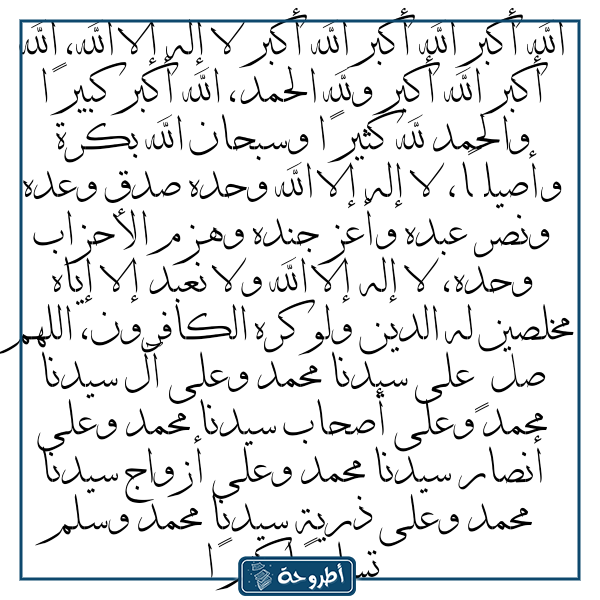 الله أكبر الله أكبر الله أكبر لا إله إلا الله، الله
أكبر الله أكبر ولله الحمد، الله أكبر كبيرًا
والحمد لله كثيرًا وسبحان الله بكرة
وأصيلًا، لا إله إلا الله وحده صدق وعده
ونصر عبده وأعز جنده وهزم الأحزاب
وحده، لا إله إلا الله ولا نعبد إلا إياه
مخلصين له الدين ولو كره الكافرون، اللهم
صل على سيدنا محمد وعلى آل سيدنا
محمد وعلى أصحاب سيدنا محمد وعلى
أنصار سيدنا محمد وعلى أزواج سيدنا
محمد وعلى ذرية سيدنا محمد وسلم
أطروحة